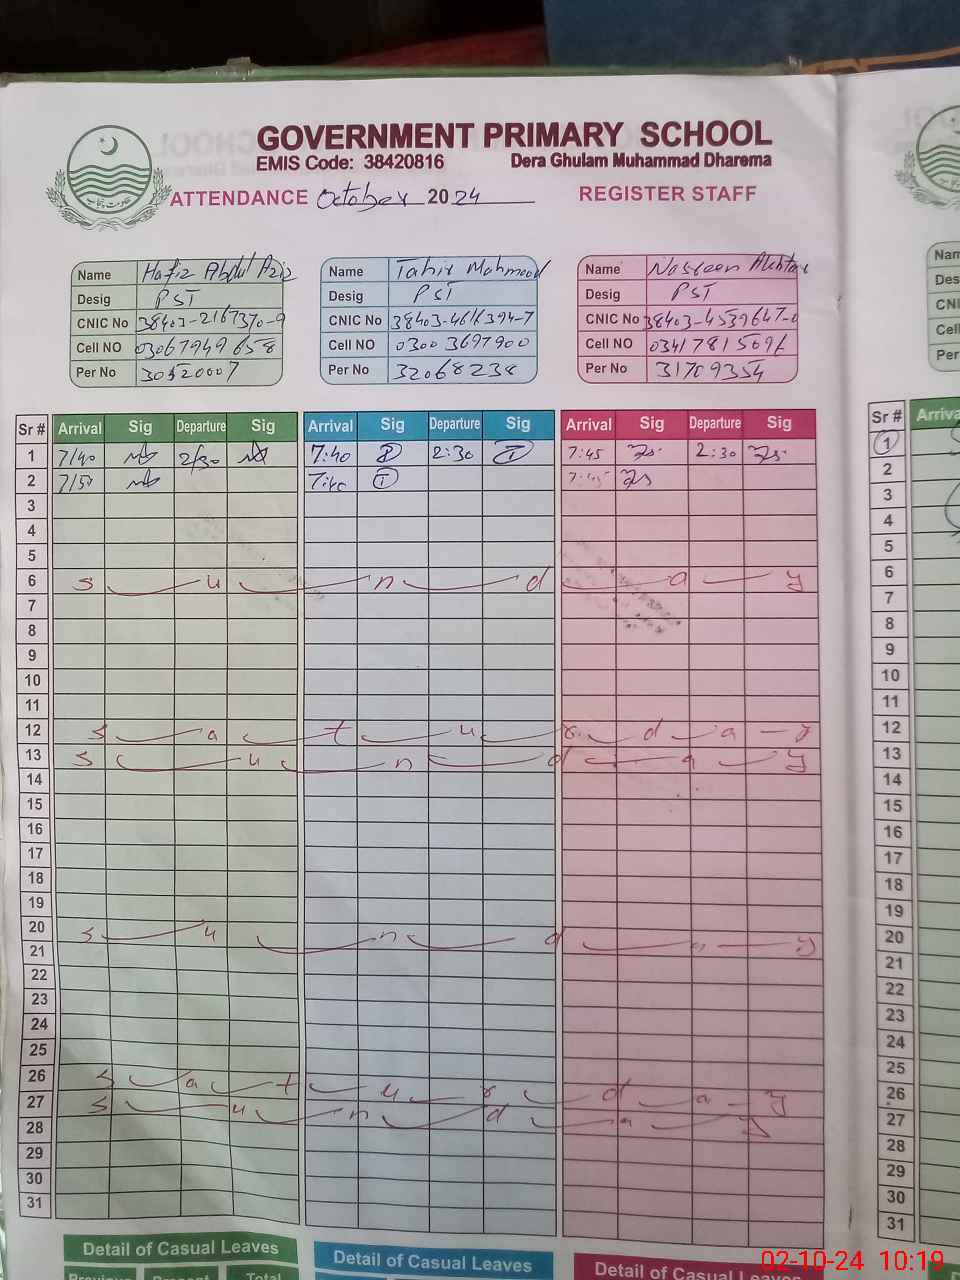 GOVERNMENT PRIMARY SCHOOL
EMIS Code: 38420816 Dera Ghulam Muhammad Dharema
ATTENDANCE October 2024 REGISTER STAFF
Name Hafiz Abdul Aziz
Desig PST
CNIC No 38403-2167370-9
Cell NO 03067949658
Per No 30520007
Name Tahir Mahmood
Desig PST
CNIC No 38403-4616394-7
Cell NO 03003697900
Per No 32068238
Name Nasreen Akhtar
Desig PST
CNIC No 38403-4539647-0
Cell NO 03417815696
Per No 31709354
Sr # Arrival Sig Departure Sig Arrival Sig Departure Sig Arrival Sig Departure Sig
1 7/40 2/30 7:40 2:30 7:45 2:30
2 7/50 7:45
3
4
5
6 s u n d a y
7
8
9
10
11
12 s a t u r d a y
13 s u n d a y
14
15
16
17
18
19
20 s u n d a y
21
22
23
24
25
26 s a t u r d a y
27 s u n d a y
28
29
30
31
Detail of Casual Leaves Detail of Casual Leaves Detail of Casual Leaves
Previous Present Total
Nam
Des
CNI
Cell
Per
Sr # Arriva
1
2
3
4
5
6
7
8
9
10
11
12
13
14
15
16
17
18
19
20
21
22
23
24
25
26
27
28
29
30
31
02-10-24 10:19